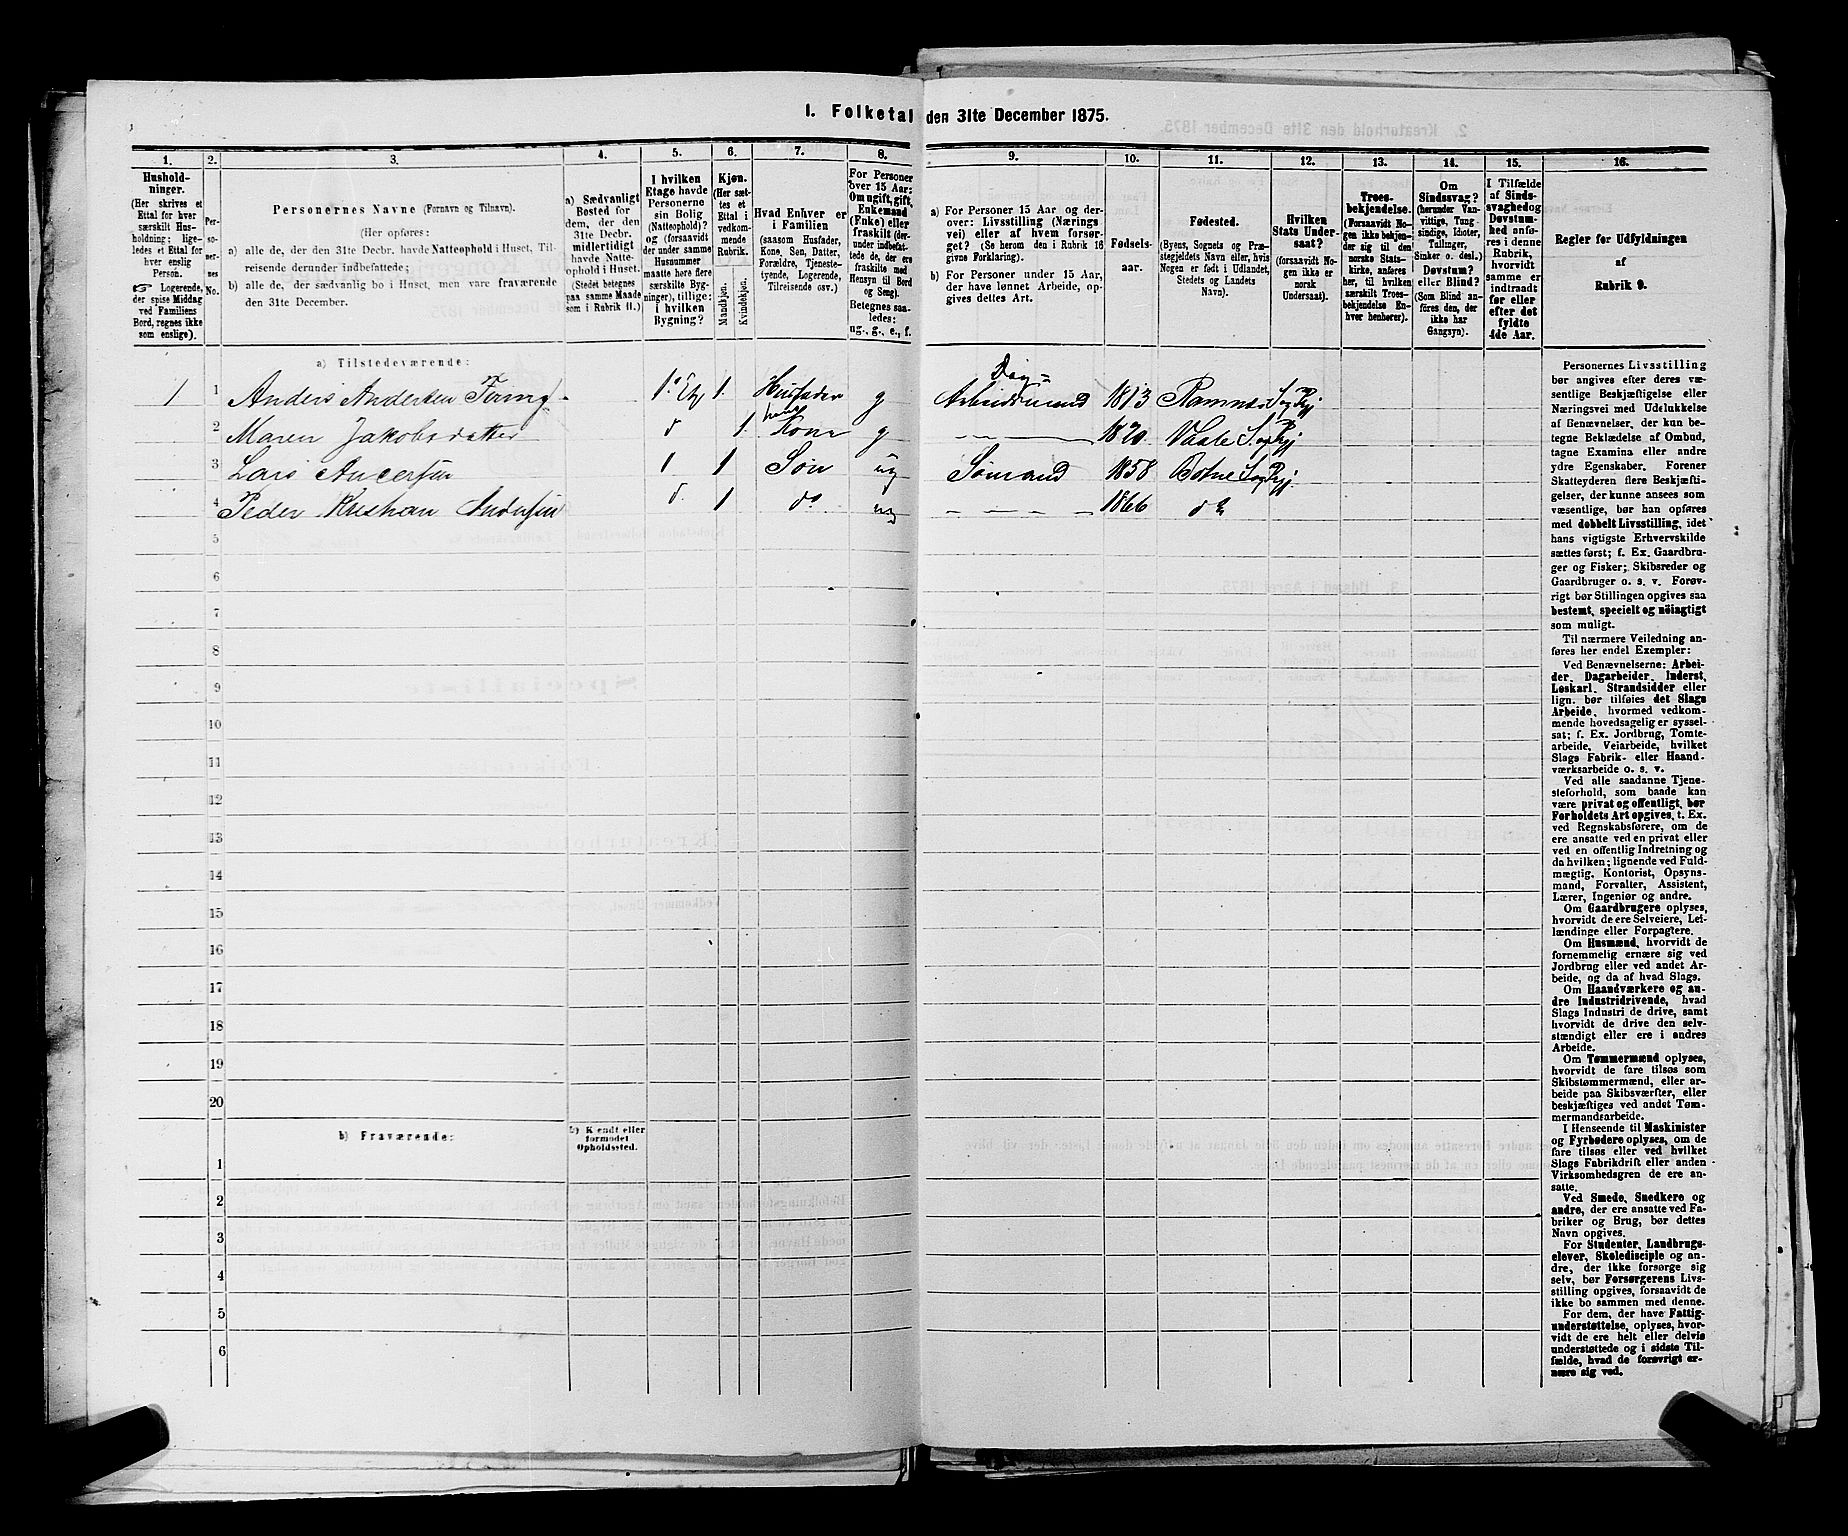 1. Folketal den 31te December 1875.
1. 2. 3. 4. 5. 6. 7. 8. 9. 10. 11. 12. 13. 14. 15. 16.
Hushold-
ninger.
(Her skrives et
Ettal for hver
særskilt Hus-
holdning; lige-
ledes et Ettal for
hver enslig
Person.
Logerende,
der spise Middag
ved Familiens
Bord, regnes ikke
som enslige).
Per-
so-
ner-
nes
No.
Personernes Navne (Fornavn og Tilnavn).
(Her opføres:
a) alle de, der den 31te Decbr. havde Natteophold i Huset, Til-
reisende derunder indbefattede;
b) alle de, der sædvanlig bo i Huset, men vare fraværende
den 31te December.
a) Sædvanligt
Bosted for
dem, der den
31te Decbr.
midlertidigt
havde Natte-
ophold i Huset.
(Stedet betegnes
paa samme Maade
som i Rubrik 11.)
I hvilken
Etage havde
Personerne
sin Bolig
(Natteophold)?
og (forsaavidt
der under samme
Husnummer
maatte høre flere
særskilte Byg-
ninger), tillige:
i hvilken
Bygning?
Kjøn.
(Her sæt-
tes et
Ettal i
vedkom-
mende
Rubrik.
Mandkjøn.
Kvindekjøn.
Hvad Enhver er
i Familien
(saasom Husfader,
Kone, Søn, Datter,
Forældre, Tjeneste-
tyende, Logerende,
Tilreisende osv.)
For Personer
over 15 Aar:
Om ugift, gift,
Enkemand
(Enke) eller
fraskilt (der-
under indbefat-
tede de, der ere
fraskilte med
Hensyn til Bord
og Seng).
Betegnes saa-
ledes:
ug., g., e., f.
a) For Personer 15 Aar og der-
over: Livsstilling (Nærings-
vei) eller af hvem forsør-
get? (Se herom den i Rubrik 16
givne Forklaring).
b) For Personer under 15 Aar,
der have lønnet Arbeide, op-
gives dettes Art.
Fødsels-
aar.
Fødested.
(Byens, Sognets og Præ-
stegjeldets Navn eller, hvis
Nogen er født i Udlandet,
Stedets og Landets
Navn).
Hvilken
Stats Under-
saat?
(forsaavidt No-
gen ikke er
norsk
Undersaat).
Troes-
bekjendelse.
(Forsaavidt No-
gen ikke bekjen-
der sig til den
norske Stats-
kirke, anføres
her, til hvilken
særskilt Troes-
bekjendelse En-
hver henhører).
Om
Sindssvag?
(herunder Van-
vittige, Tung-
sindige, Idioter,
Tullinger,
Sinker o. desl.)
Døvstum?
eller Blind?
(Som Blind an-
føres den, der
ikke har
Gangsyn).
I Tilfælde
af Sinds-
svaghed og
Døvstum-
hed anfø-
res i denne
Rubrik,
hvorvidt
samme er
indtraadt
før eller
efter det
fyldte
4de Aar.
Regler for Udfyldningen
af
Rubrik 9.
a) Tilstedeværende:
1 1 Anders Andersen 1. Etg 1. Husfader g Dag=
Arbeidsmand 1813 Ramnes Sog Prgj
2 Maren Jakobsdatter d 1. hans
Kone g 1820. Vaale S og Prgj
3 Lars Andersen 1 1 Søn ug Sømand 1858 Botne Sog Prgj.
4 Peder Kristian Andersen d. 1 do. ug 1866 do
5
6
7
8
9
10
11
12
13
14
15
16
17
18
19
20
b) Fraværende:
b) Kjendt eller
formodet
Opholdssted.
1
2
3
4
5
6
Personernes Livsstilling
bør angives efter deres væ-
sentlige Beskjæftigelse eller
Næringsvei med Udelukkelse
af Benævnelser, der kun be-
tegne Beklædelse af Ombud,
tagne Examina eller andre
ydre Egenskaber. Forener
Skatteyderen flere Beskjæfti-
gelser, der kunne ansees som
væsentlige, bør han opføres
med dobbelt Livsstilling, idet
hans vigtigste Erhvervskilde
sættes først; f. Ex. Gaardbru-
ger og Fisker; Skibsreder og
Gaardbruger o. s. v. Forøv-
rigt bør Stillingen opgives saa
bestemt, specielt og nøiagtigt
som muligt.
Til nærmere Veiledning an-
føres her endel Exempler:
Ved Benævnelserne: Arbei-
der, Dagarbeider, Inderst,
Løskarl, Strandsidder eller
lign. bør tilføies det Slags
Arbeide, hvormed vedkom-
mende hovedsagelig er syssel-
sat; f. Ex. Jordbrug, Tomte-
arbeide, Veiarbeide, hvilket
Slags Fabrik- eller Haand-
værksarbeide o. s. v.
Ved alle saadanne Tjene-
steforhold, som baade kan
være privat og offentligt, bør
Forholdets Art opgives, t. Ex.
ved Regnskabsførere, om de
ere ansatte ved en privat eller
ved en offentlig Indretning og
da hvilken; lignende ved Fuld-
mægtig, Kontorist, Opsyns-
mand, Forvalter, Assistent,
Lærer, Ingeniør og andre.
Om Gaardbrugere oplyses,
hvorvidt de ere Selveiere, Lei-
lændinge eller Forpagtere.
Om Husmænd, hvorvidt de
fornemmelig ernære sig ved
Jordbrug eller ved andet Ar-
beide, og da af hvad Slags.
Om Haandværkere og an-
dre Industridrivende, hvad
Slags Industri de drive, samt
hvorvidt de drive den selv-
stændigt eller ere i andres
Arbeide.
Om Tømmermænd oplyses,
hvorvidt de fare tilsøs som
Skibstømmermænd, eller ar-
beide paa Skibsværfter, eller
beskjæftiges ved andet Tøm-
mermandsarbeide.
I Henseende til Maskinister
og Fyrbødere oplyses, om de
fare tilsøs eller ved hvilket
Slags Fabrikdrift eller anden
Virksomhedsgren de ere an-
satte.
Ved Smede, Snedkere og
andre, der ere ansatte ved Fa-
briker og Brug, bør dettes
Navn opgives.
For Studenter, Landbrugs-
elever, Skoledisciple og an-
dre, der ikke forsørge sig
selv, bør Forsørgerens Livs-
stilling opgives, forsaavidt de
ikke bo sammen med denne.
For dem, der have Fattig-
understøttelse, oplyses, hvor-
vidt de ere helt eller delvis
understøttede og i sidste Til-
fælde, hvad de forøvrigt er-
nære sig ved.